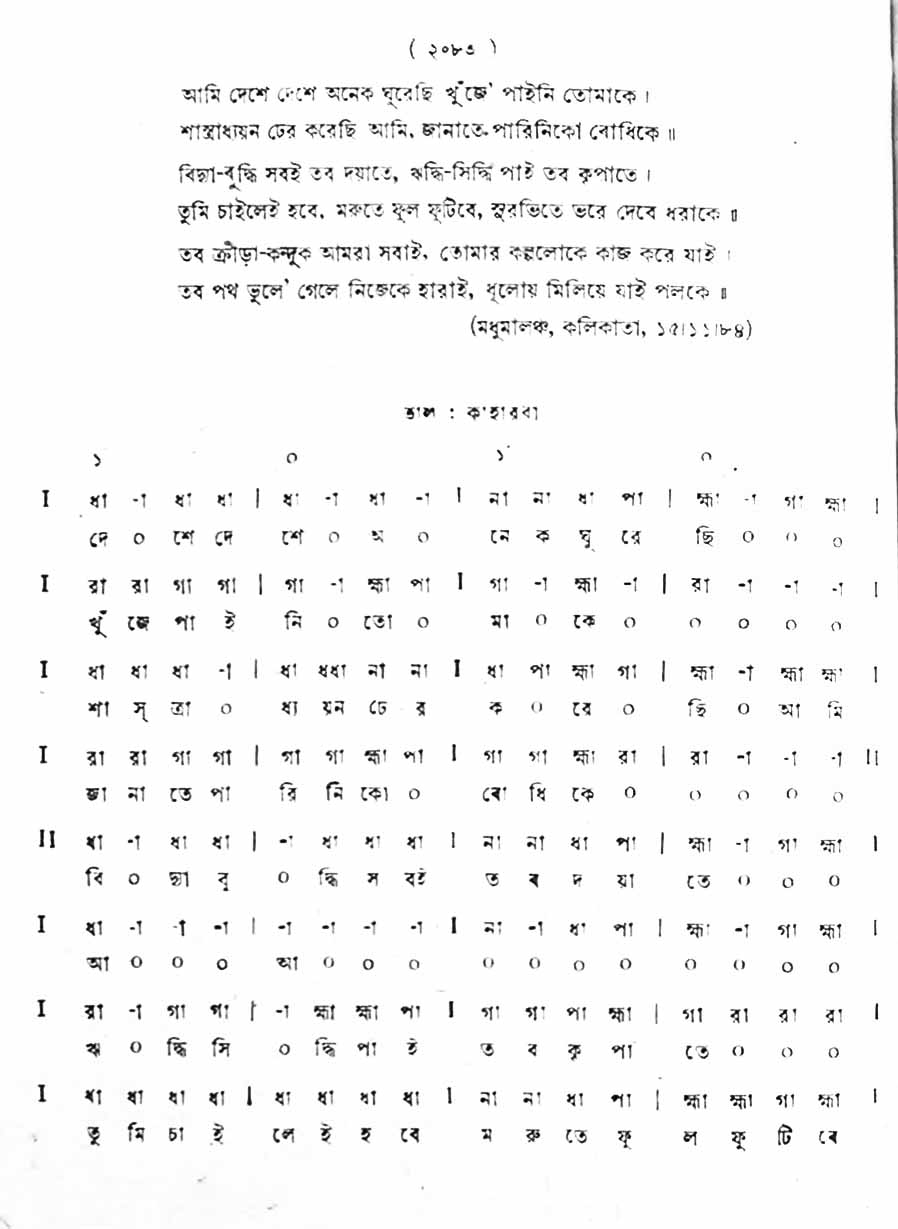 ( ২০৮৩ )
আমি দেশে দেশে অনেক ঘুরেছি খুঁজে' পাইনি তোমাকে ।
শাস্ত্রাধ্যয়ন ঢের করেছি আমি, জানাতে পারিনিকো বোধিকে ॥
বিদ্যা-বুদ্ধি সবই তব দয়াতে, ঋদ্ধি-সিদ্ধি পাই তব কৃপাতে ।
তুমি চাইলেই হবে, মরুতে ফুল ফুটিবে, সুরভিতে ভরে দেবে ধরাকে ॥
তব ক্রীড়া-কন্দুক আমরা সবাই, তোমার কল্পলোকে কাজ করে যাই ।
তব পথ ভুলে' গেলে নিজেকে হারাই, ধূলোয় মিলিয়ে যাই পলকে ॥
(মধুমালঞ্চ, কলিকাতা, ১৫।১১।৮৪)
তাল : কাহারবা
১ ০ ১ ০
I ধা -া ধা ধা | ধা -া ধা -া I না না ধা পা | হ্মা -া গা হ্মা I
দে ০ শে দে শে ০ অ ০ নে ক ঘু রে ছি ০ ০ ০
I রা রা গা গা | গা -া হ্মা পা I গা -া হ্মা -া | রা -া -া -া I
খুঁ জে পা ই নি ০ তো ০ মা ০ কে ০ ০ ০ ০ ০
I ধা ধা ধা -া | ধা ধধা না না I ধা পা হ্মা গা | হ্মা -া হ্মা হ্মা I
শা স্ ত্রা ০ ধ্য য়ন ঢে র ক ০ রে ০ ছি ০ আ মি
I রা রা গা গা | গা গা হ্মা পা I গা গা হ্মা রা | রা -া -া -া II
জা না তে পা রি নি কো ০ বো ধি কে ০ ০ ০ ০ ০
II ধা -া ধা ধা | -া ধা ধা ধা I না না ধা পা | হ্মা -া গা হ্মা I
বি ০ দ্যা বু ০ দ্ধি স বই ত ব দ য়া তে ০ ০ ০
I ধা -া -া -া | -া -া -া -া I না -া ধা পা | হ্মা -া গা হ্মা I
আ ০ ০ ০ আ ০ ০ ০ ০ ০ ০ ০ ০ ০ ০ ০
I রা -া গা গা | -া হ্মা হ্মা পা I গা গা পা হ্মা | গা রা রা রা I
ঋ ০ দ্ধি সি ০ দ্ধি পা ই ত ব কৃ পা তে ০ ০ ০
I ধা ধা ধা ধা | ধা ধা ধা ধা I না না ধা পা | হ্মা হ্মা গা হ্মা I
তু মি চা ই লে ই হ বে ম রু তে ফু ল ফু টি বে